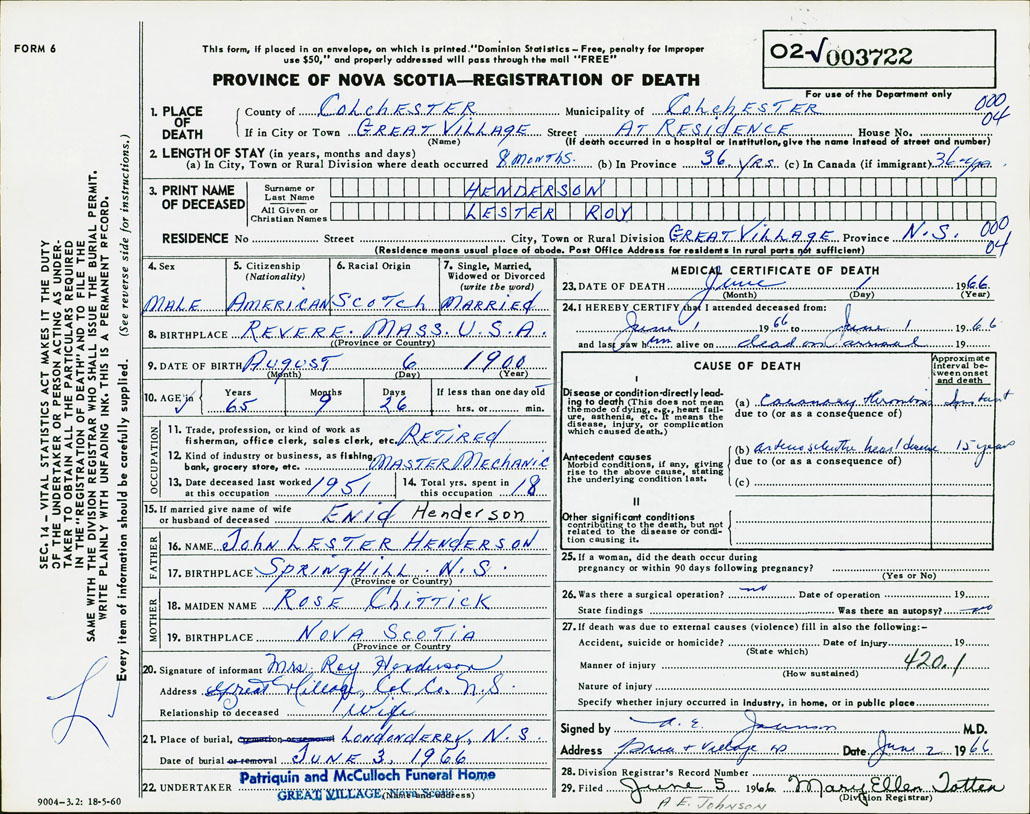 FORM 6
This form, if placed in an envelope, on which is printed."Dominion Statistics – Free, penalty for improper
use $50," and properly addressed will pass through the mail "FREE"
02-√003722
For use of the Department only
PROVINCE OF NOVA SCOTIA—REGISTRATION OF DEATH
1. PLACE OF DEATH
County of COLCHESTER Municipality of COLCHESTER 000
If in City or Town GREAT VILLAGE Street AT RESIDENCE House No. 04
(Name) (If death occurred in a hospital or institution, give the name instead of street and number)
2. LENGTH OF STAY (in years, months and days)
(a) In City, Town or Rural Division where death occurred 8 MONTHS. (b) In Province 36 YRS. (c) In Canada (if immigrant) 36 yrs.
3. PRINT NAME OF DECEASED
Surname or Last Name HENDERSON
All Given or Christian Names LESTER ROY
RESIDENCE No Street City, Town or Rural Division GREAT VILLAGE Province N.S. 000 04
(Residence means usual place of abode. Post Office Address for residents in rural parts not sufficient)
4. Sex MALE
5. Citizenship (Nationality) AMERICAN
6. Racial Origin SCOTCH
7. Single, Married, Widowed or Divorced (write the word) MARRIED
8. BIRTHPLACE REVERE. MASS. U.S.A.
(Province or Country)
9. DATE OF BIRTH AUGUST 6 1900
(Month) (Day) (Year)
10. AGE in Years 65 Months 9 Days 26 If less than one day old hrs. or min.
OCCUPATION
11. Trade, profession, or kind of work as
fisherman, office clerk, sales clerk, etc. RETIRED
12. Kind of industry or business, as fishing,
bank, grocery store, etc. MASTER MECHANIC
13. Date deceased last worked at this occupation 1951
14. Total yrs. spent in this occupation 18
15. If married give name of wife
or husband of deceased ENID Henderson
FATHER
16. NAME JOHN LESTER HENDERSON
17. BIRTHPLACE SPRINGHILL. N.S.
(Province or Country)
MOTHER
18. MAIDEN NAME ROSE CHITTICK
19. BIRTHPLACE NOVA SCOTIA
(Province or Country)
20. Signature of informant Mrs. Roy Henderson
Address Great Village, Col. Co. N.S.
Relationship to deceased Wife
21. Place of burial, cremation or removal LONDONDERRY, N.S.
Date of burial or removal JUNE 3, 1966
22. UNDERTAKER Patriquin and McCulloch Funeral Home
GREAT VILLAGE, Nova Scotia
(Name and address)
MEDICAL CERTIFICATE OF DEATH
23. DATE OF DEATH June 1 1966
(Month) (Day) (Year)
24. I HEREBY CERTIFY that I attended deceased from:
June 1 1966 to June 1 1966
and last saw him alive on dead on arrival 19
CAUSE OF DEATH
Approximate interval between onset and death
I
Disease or condition directly leading to death (This does not mean the mode of dying, e.g., heart failure, asthenia, etc. It means the disease, injury, or complication which caused death.)
(a) Coronary thrombosis Instant
due to (or as a consequence of)
Antecedent causes
Morbid conditions, if any, giving rise to the above cause, stating the underlying condition last.
(b) arteriosclerotic heart disease 15 years
due to (or as a consequence of)
(c)
II
Other significant conditions
contributing to the death, but not related to the disease or condition causing it.
25. If a woman, did the death occur during
pregnancy or within 90 days following pregnancy?
(Yes or No)
26. Was there a surgical operation? no Date of operation 19
State findings Was there an autopsy? no
27. If death was due to external causes (violence) fill in also the following:–
Accident, suicide or homicide? Date of injury 19
(State which)
Manner of injury 420.1
(How sustained)
Nature of injury
Specify whether injury occurred in industry, in home, or in public place
Signed by A. E. Johnson M.D.
Address Great Village NS Date June 2 1966
28. Division Registrar's Record Number
29. Filed June 5 1966 Mary Ellen Totten
(Division Registrar)
A E. JOHNSON
9004–3.2: 18-5-60
SEC. 14 – VITAL STATISTICS ACT MAKES IT THE DUTY
OF THE UNDERTAKER OR PERSON ACTING AS UNDER-
TAKER TO OBTAIN ALL THE PARTICULARS REQUIRED
IN THE "REGISTRATION OF DEATH" AND TO FILE THE
SAME WITH THE DIVISION REGISTRAR WHO SHALL ISSUE THE BURIAL PERMIT.
WRITE PLAINLY WITH UNFADING INK. THIS IS A PERMANENT RECORD.
Every item of information should be carefully supplied. (See reverse side for instructions.)